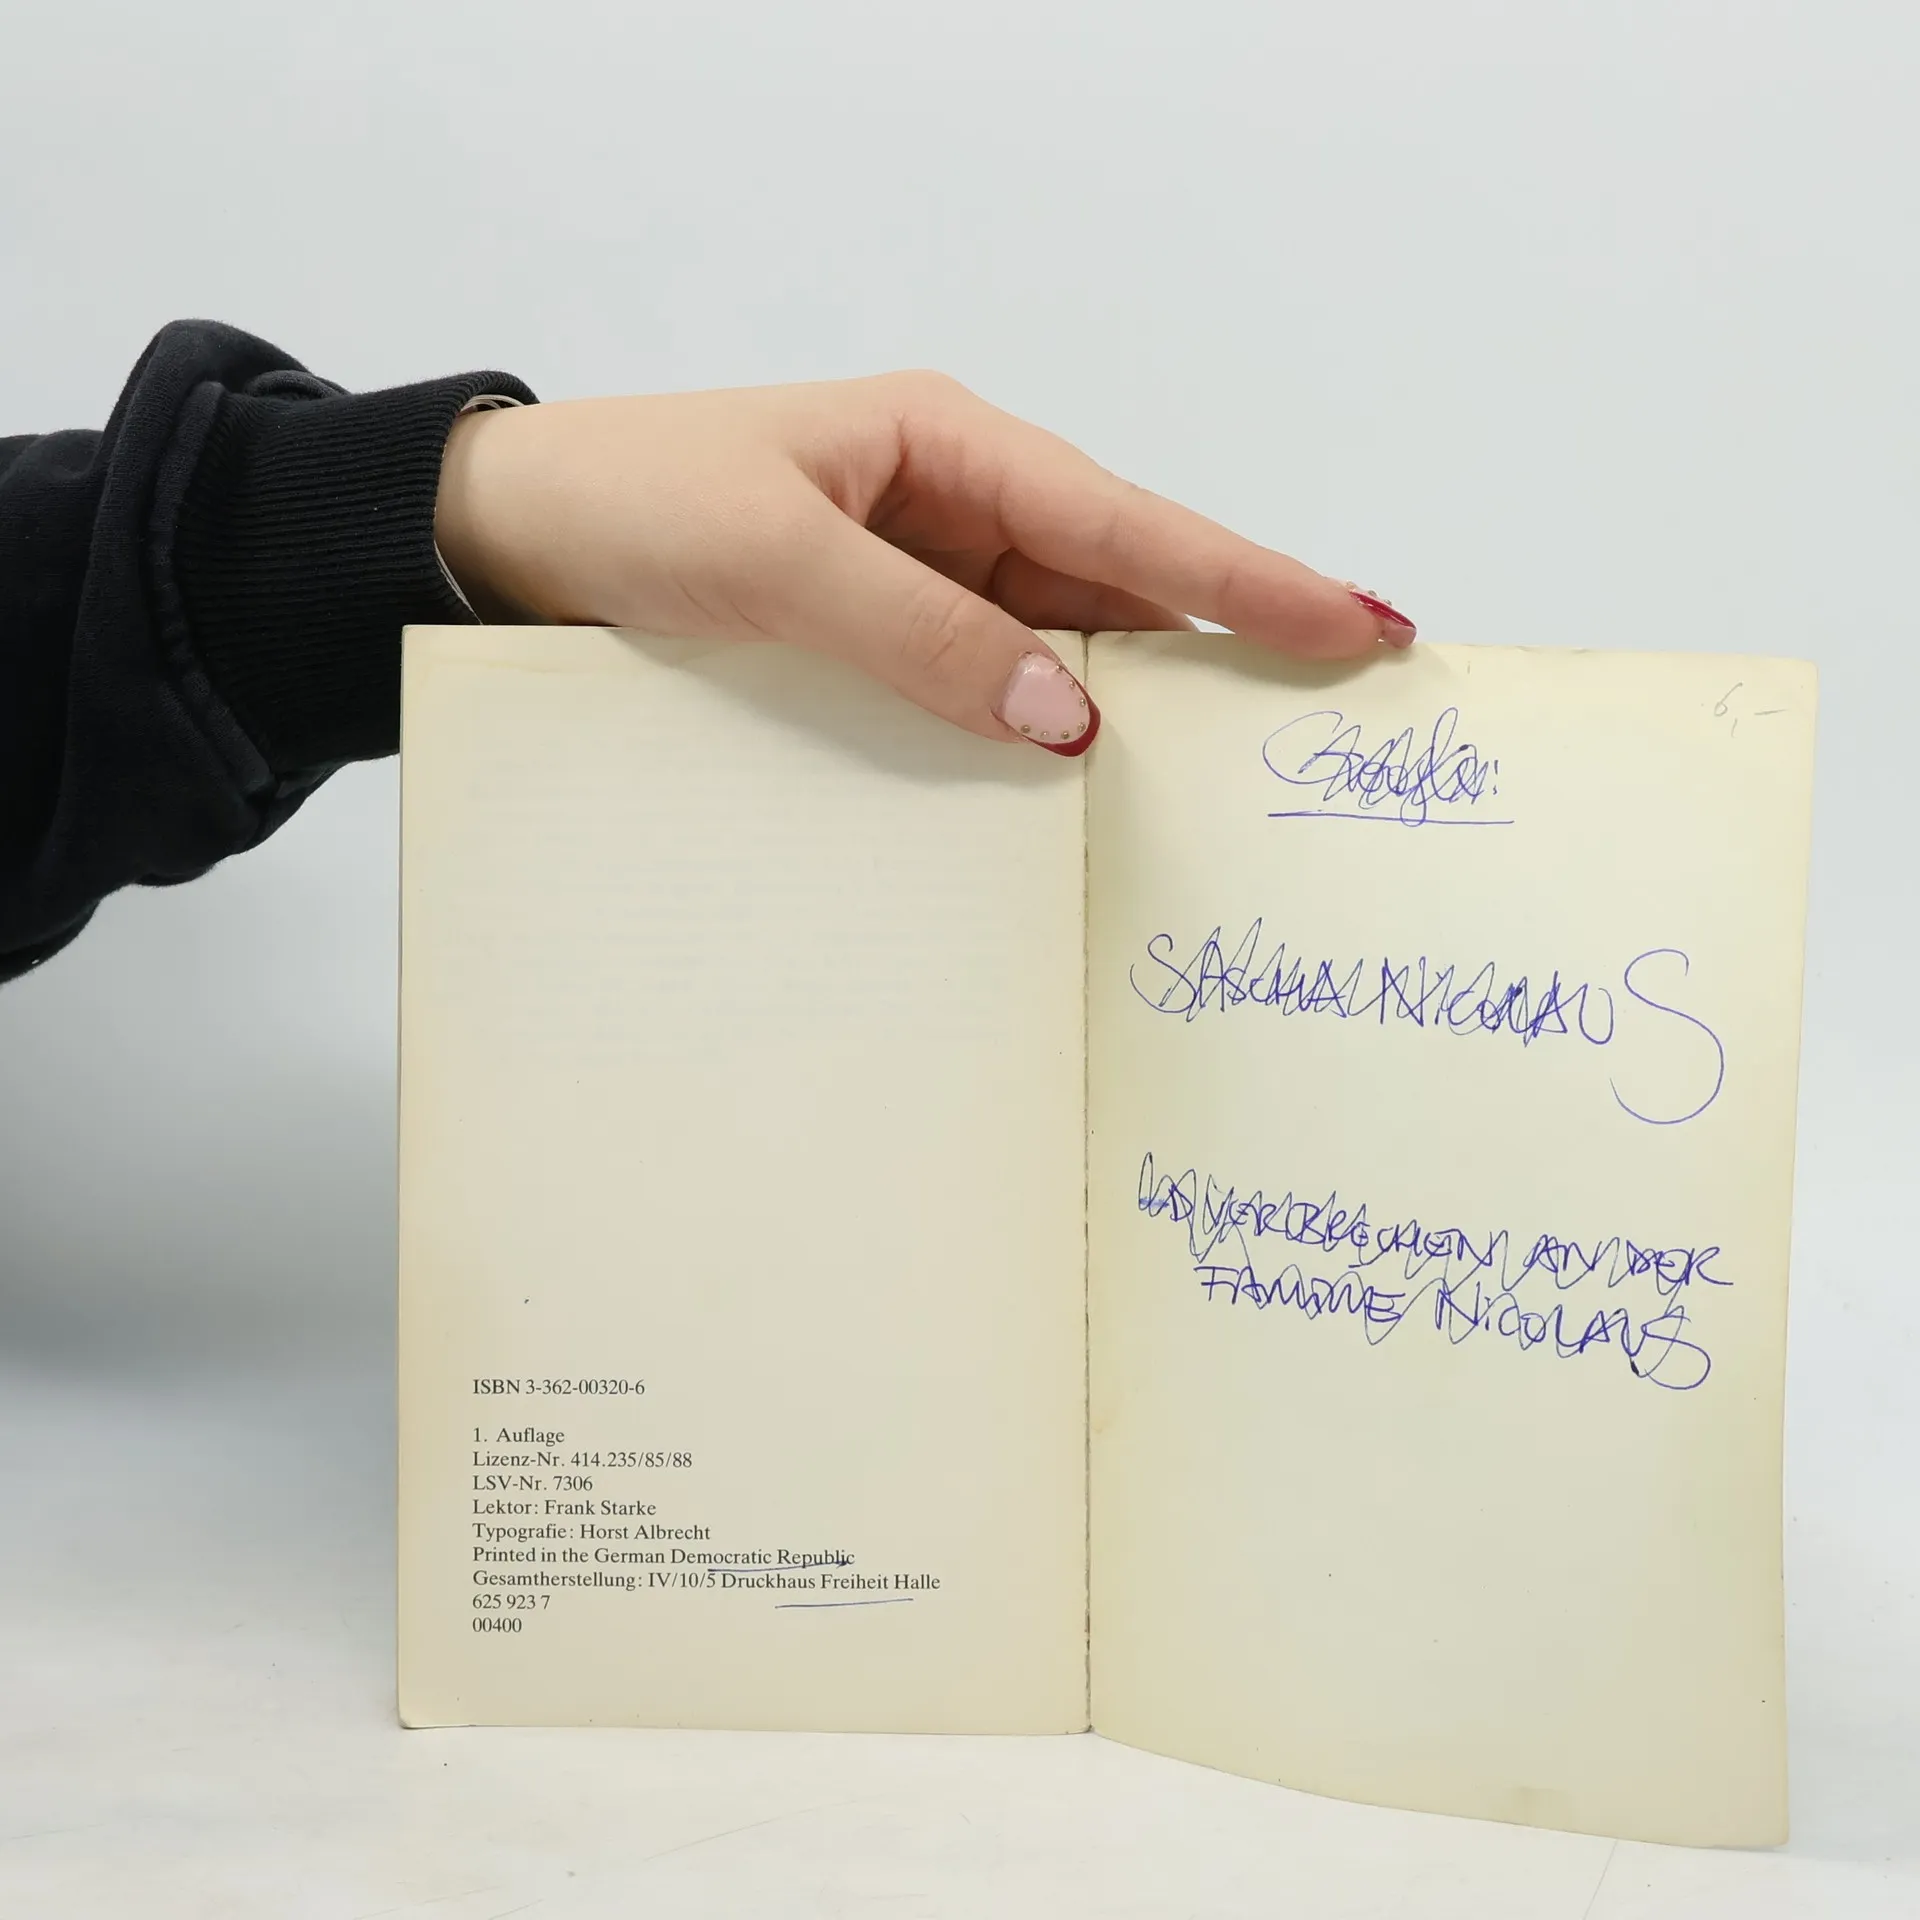 ISBN 3-362-00320-6
1. Auflage
Lizenz-Nr. 414.235/85/88
LSV-Nr. 7306
Lektor: Frank Starke
Typografie: Horst Albrecht
Printed in the German Democratic Republic
Gesamtherstellung: IV/10/5 Druckhaus Freiheit Halle
625 923 7
00400
6,—
SASCHA NICOLAUS
VERBRECHEN AN DER
FAMILIE NICOLAUS